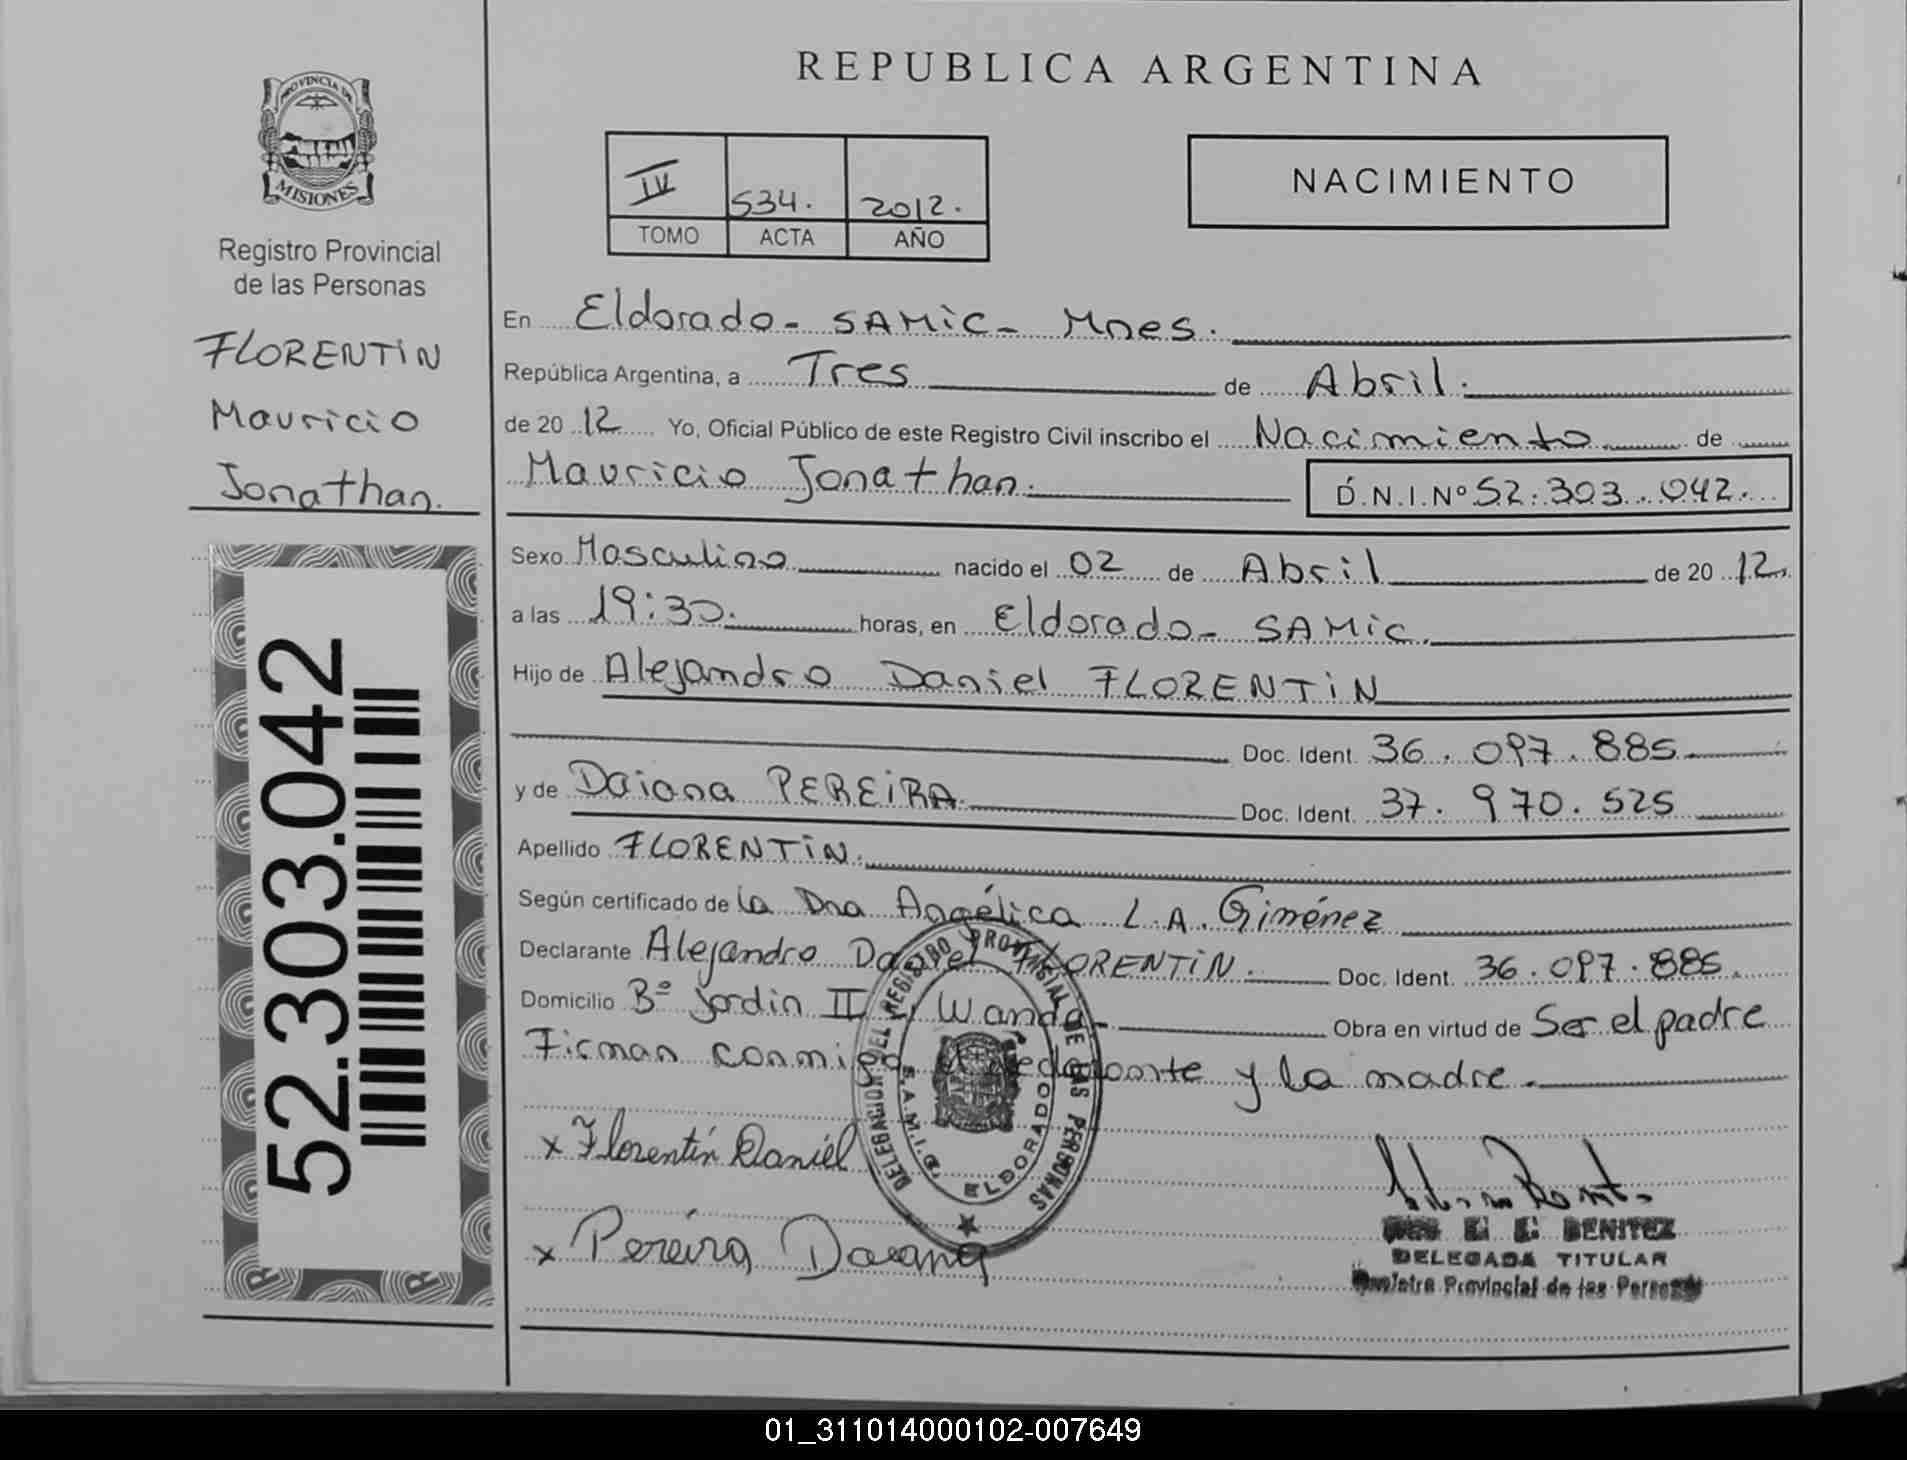 PROVINCIA DE
MISIONES
Registro Provincial
de las Personas
FLORENTIN
Mauricio
Jonathan.
52.303.042
REPUBLICA ARGENTINA
IV 534. 2012.
TOMO ACTA AÑO
NACIMIENTO
En Eldorado - SAMiC - Mnes.
República Argentina, a Tres de Abril.
de 20 12 Yo, Oficial Público de este Registro Civil inscribo el Nacimiento de
Mauricio Jonathan. D.N.I.Nº 52.303.042.
Sexo Masculino nacido el 02 de Abril de 20 12.
a las 19:30. horas, en Eldorado - SAMiC.
Hijo de Alejandro Daniel FLORENTiN
Doc. Ident. 36.097.885
y de Daiana PEREiRA Doc. Ident. 37.970.525
Apellido FLORENTiN.
Según certificado de la Dra Angélica L.A. Giménez
Declarante Alejandro Daniel FLORENTiN. Doc. Ident. 36.097.885.
Domicilio Bº Jardin II - Wanda - Obra en virtud de Ser el padre
Firman conmigo el declarante y la madre.
x Florentín Daniel
x Pereira Daiana
DELEGACION DEL REGISTRO PROVINCIAL DE LAS PERSONAS
ELDORADO
BENITEZ
DELEGADA TITULAR
Registro Provincial de las Personas
01_311014000102-007649